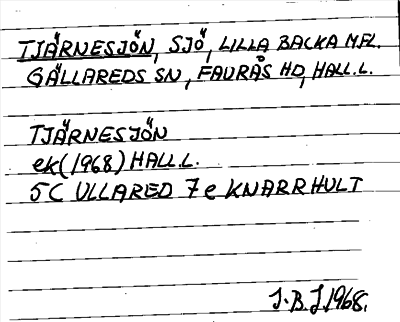 TJÄRNESJÖN, SJÖ, LILLA BACKA M.FL.
GÄLLAREDS SN, FAURÅS HD, HALL.L.
TJÄRNESJÖN
ek(1968) HALL.L.
5C ULLARED 7e KNARRHULT
J.B.J 1968.